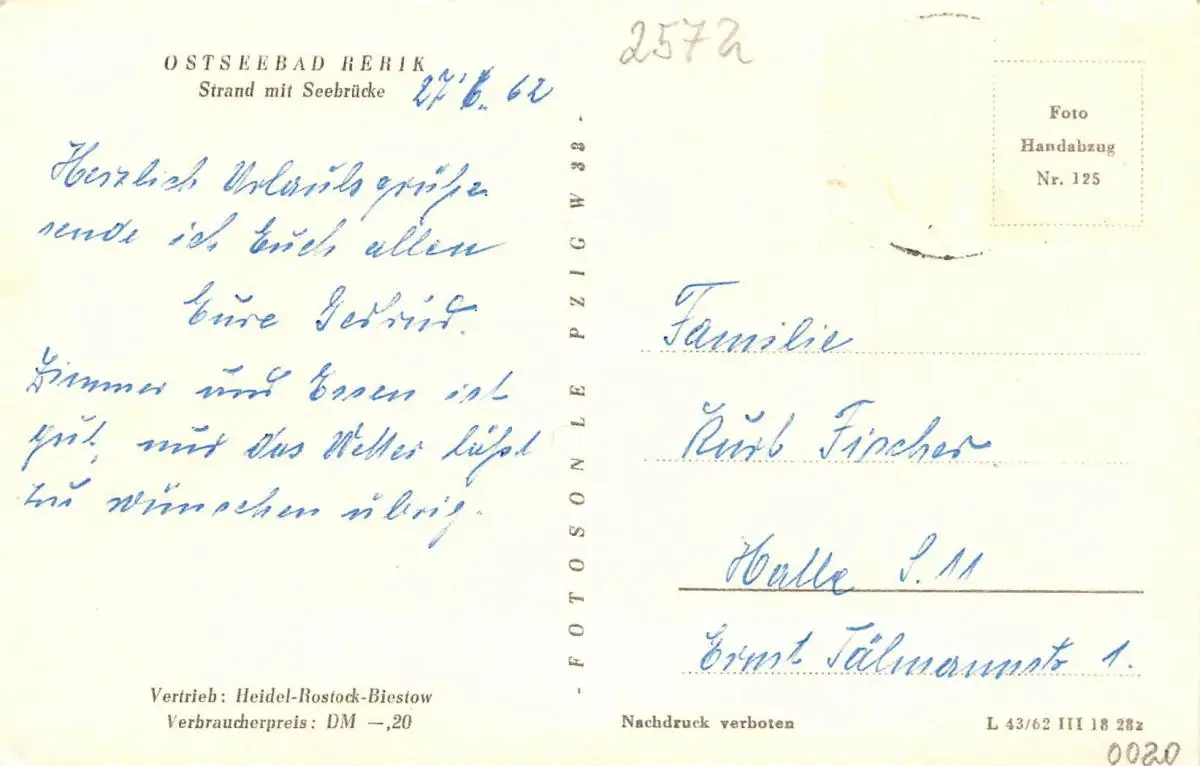 OSTSEEBAD RERIK
Strand mit Seebrücke
27.6.62
Herzlich Urlaubsgrüße
sende ich Euch allen
Eure Gertrud.
Zimmer und Essen ist
gut, nur das Wetter läßt
zu wünschen übrig.
Vertrieb: Heidel-Rostock-Biestow
Verbraucherpreis: DM —,20
- FOTOSONLE PZIG W 33 -
2572
Foto
Handabzug
Nr. 125
Familie
Kurt Fischer
Halle S. 11
Ernst Tälmannstr 1.
Nachdruck verboten
L 43/62 III 18 28z
0020